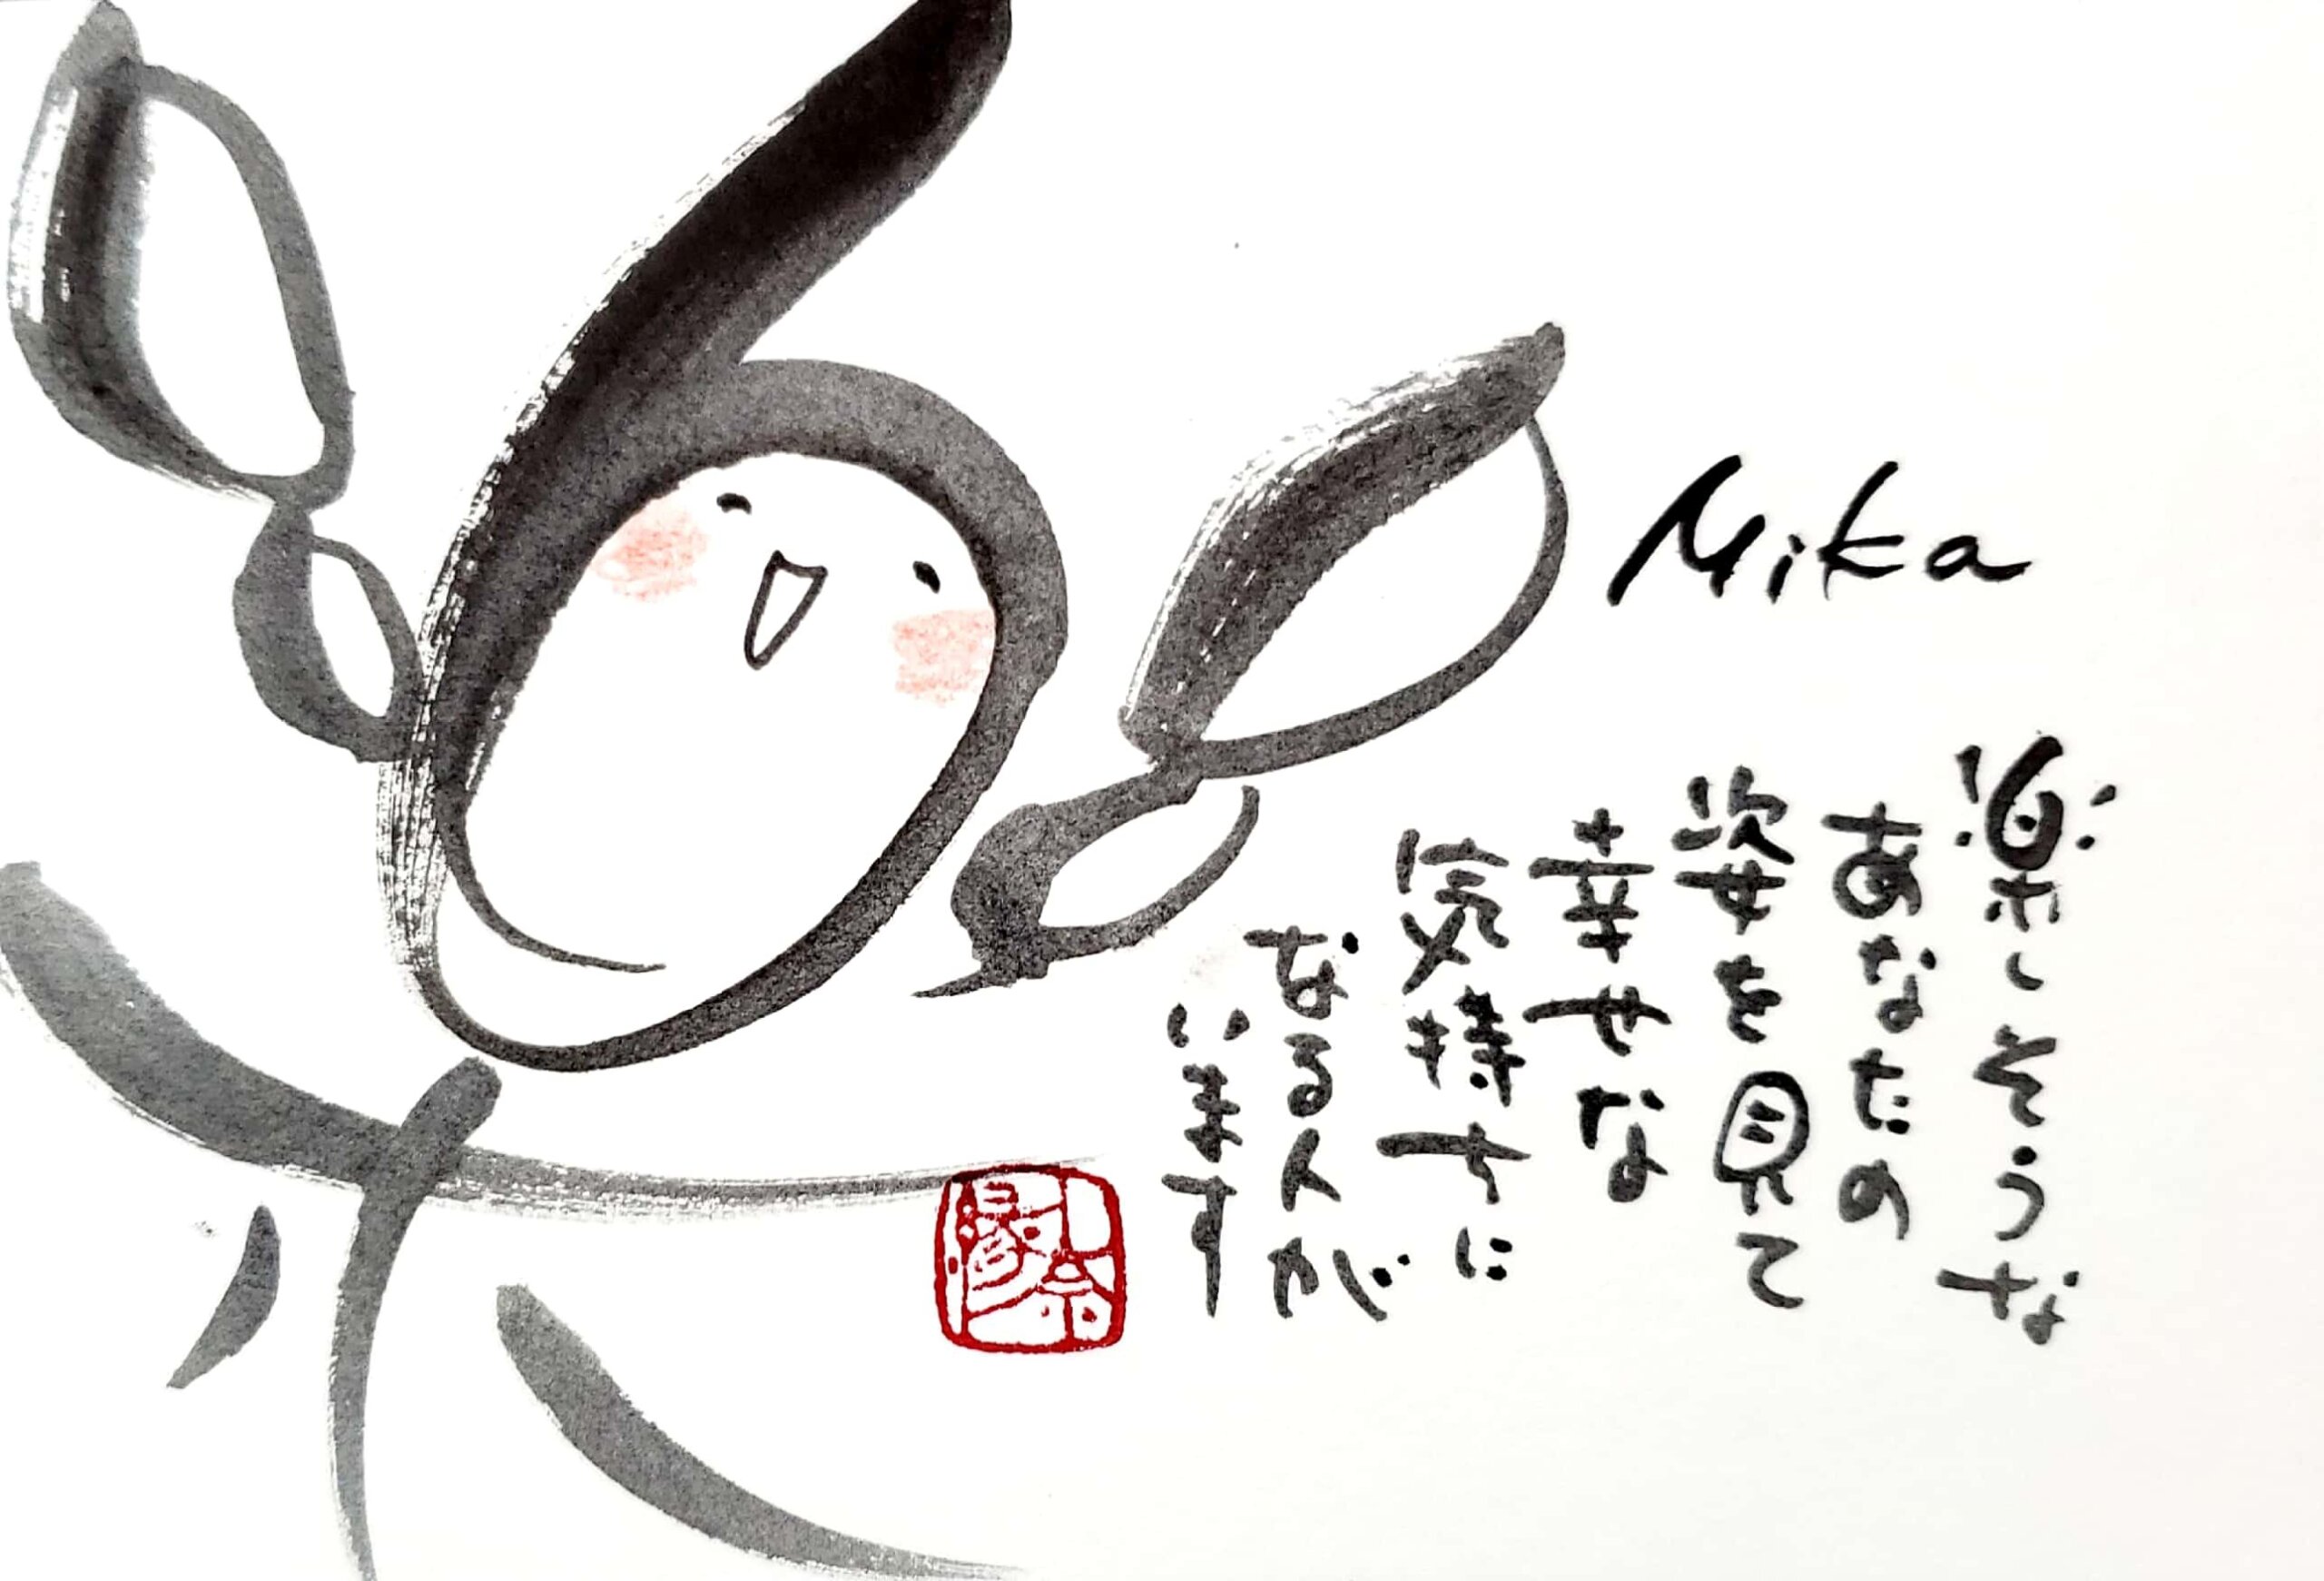 楽
Mika
楽しそうな
あなたの
姿を見て
幸せな
気持ちに
なる人が
います